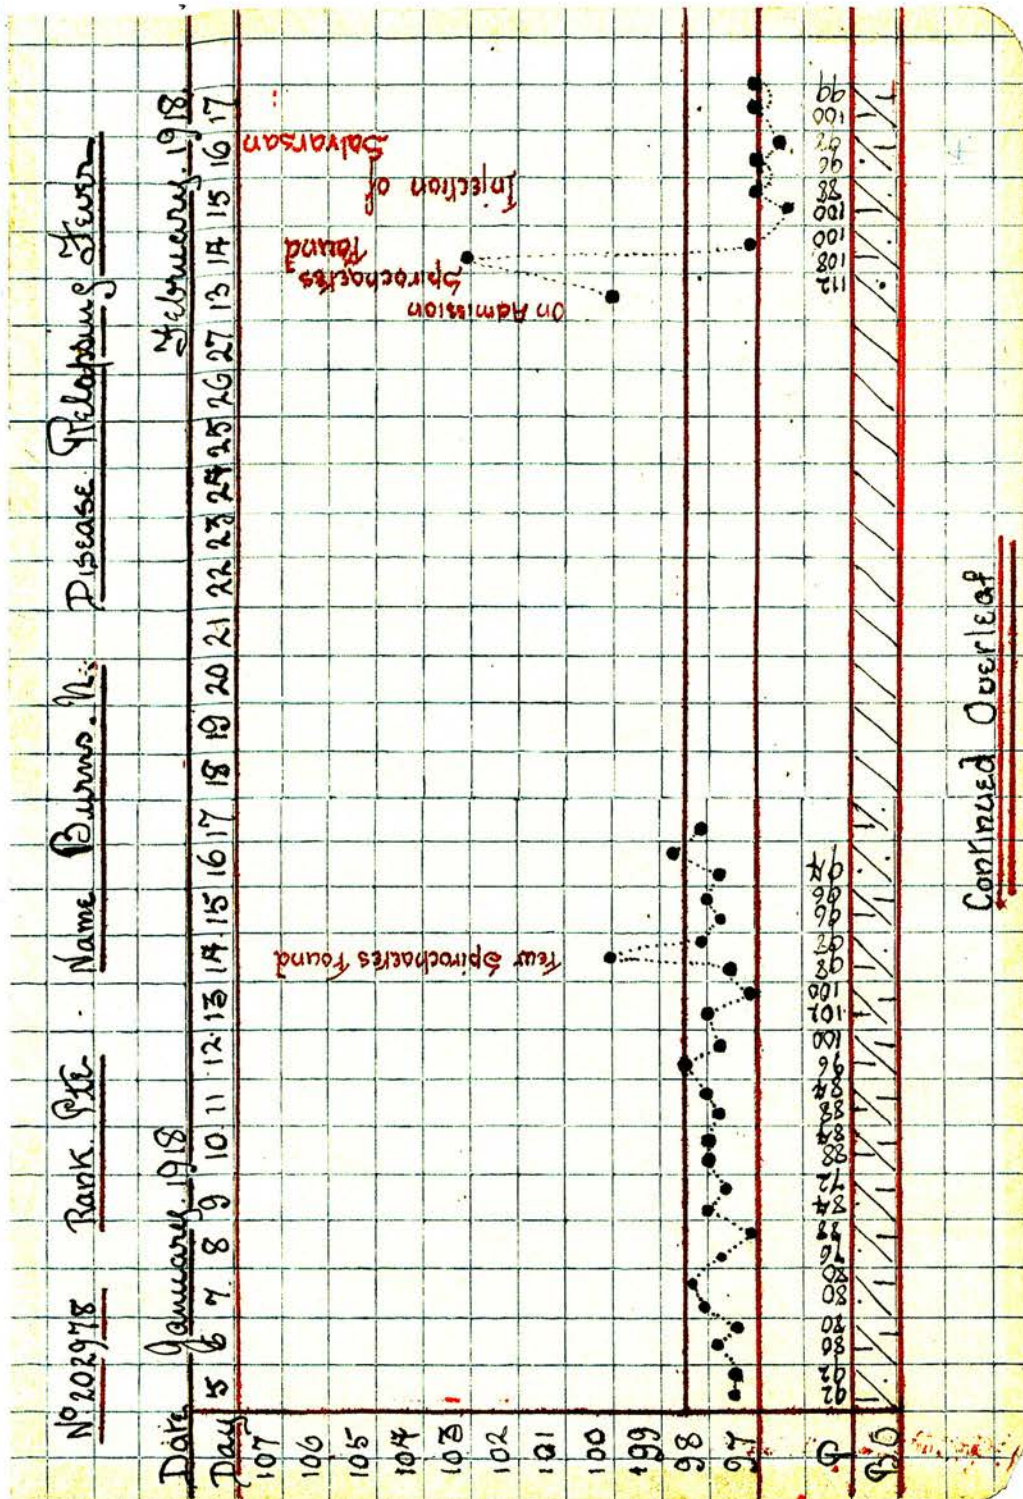 Nº 202978 Rank. Pte. Name Burns. N. Disease. Relapsing Fever
Date. January. 1918 February. 1918
Day 5 6 7 8 9 10 11 12 13 14 15 16 17 18 19 20 21 22 23 24 25 26 27 13 14 15 16 17
107
106
105
104
103
102
101
100
199
98
97
Few Spirochaetes Found
On Admission
Spirochaetes
Found
Injection of
Salvarsan
P 92 92 80 80 80 80 76 88 84 72 88 84 88 84 96 100 102 100 98 92 96 96 94 112 108 100 100 88 96 92 100 99
B.O
Continued Overleaf